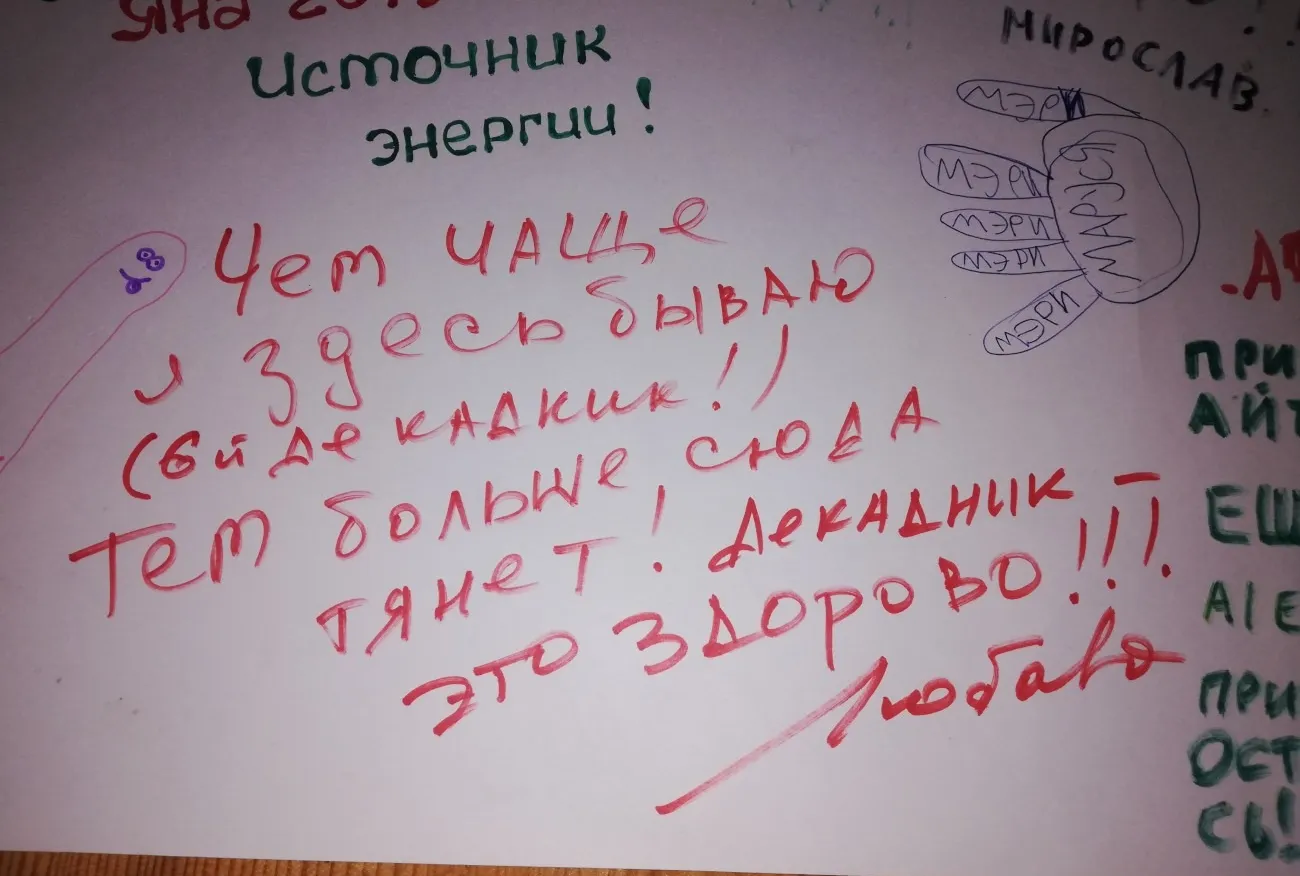 Яна
Источник
энергии!
МИРОСЛАВ.
ИДЕМ
ИДЭМ
ИДЭМ
ИДЕМ
ИДЭМ
МАРУСЯ
Чем ЧАЩе
я здесь бываю
(6й декадкик!)
Тем больше, сюда
тянет! Декадник –
это здорово!!!
Любава
ПРИ
АЙ
ЕЩ
ПРИ
ОСТ
СЬ!